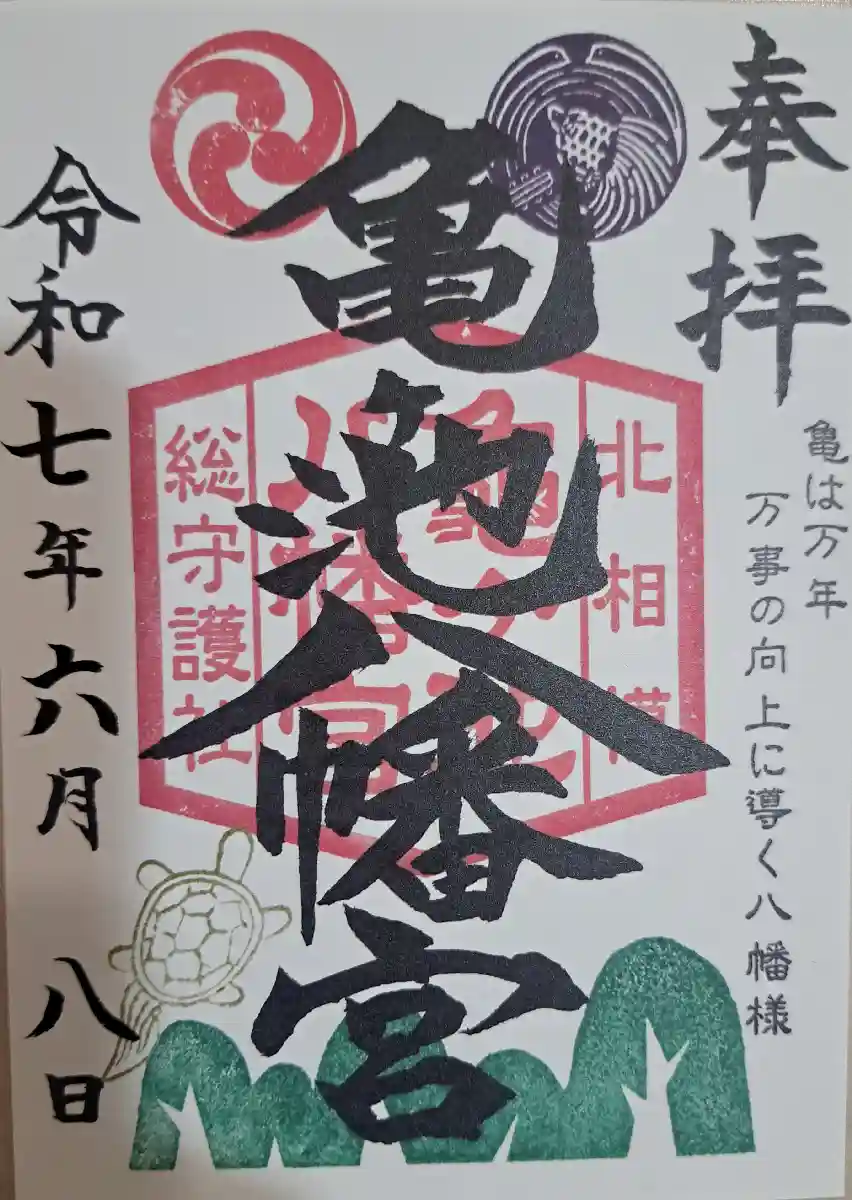 奉拝
亀は万年
万事の向上に導く八幡様
亀ヶ池八幡宮
北相模
亀ヶ池
八幡宮
総守護社
令和七年六月八日